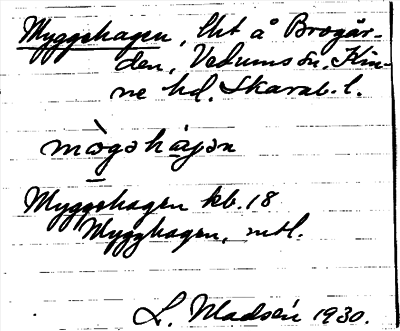 Myggehagen, lht å Brogår-
den, Vedums sn, Kin-
ne hd. Skarab. l.
mògahàgan
Myggehagen kb. 18
Mygghagen, mtl.
L. Madsén 1930.